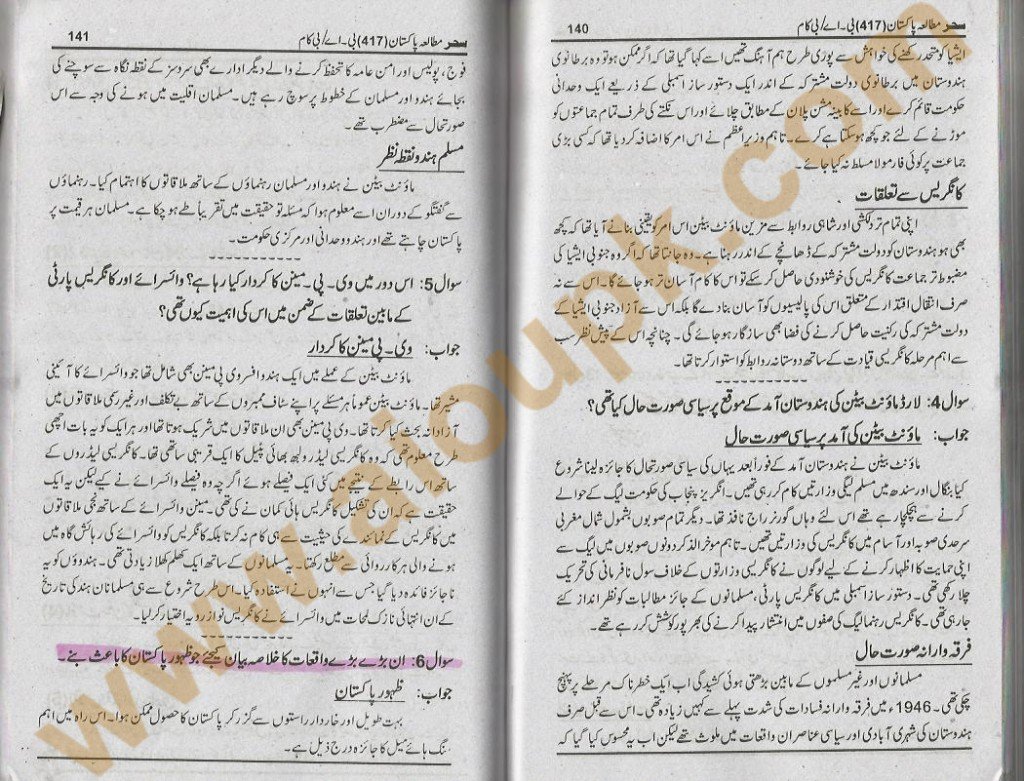 سحر مطالعہ پاکستان (417) بی۔اے/بی کام
140
ایشیا کو متحد رکھنے کی خواہش سے پوری طرح ہم آہنگ تھیں اسے کہا گیا تھا کہ اگر ممکن ہو تو وہ برطانوی
ہندوستان میں برطانوی دولت مشترکہ کے اندر ایک دستور ساز اسمبلی کے ذریعے ایک وحدانی
حکومت قائم کرے اور اسے کابینہ مشن پلان کے مطابق چلائے اور اس نکتے کی طرف تمام جماعتوں کو
موڑنے کے لئے جو کچھ ہو سکتا ہے کرے۔ تاہم وزیراعظم نے اس امر کا اضافہ کر دیا تھا کہ کسی بڑی
جماعت پر کوئی فارمولا مسلط نہ کیا جائے۔
کانگریس سے تعلقات
اپنی تمام تر دلکشی اور شاہی روابط سے مزین ماؤنٹ بیٹن اس امر کو یقینی بنانے آیا تھا کہ کچھ
بھی ہو ہندوستان کو دولت مشترکہ کے ڈھانچے کے اندر رہنا ہے۔ وہ جانتا تھا کہ اگر وہ جنوبی ایشیا کی
مضبوط تر جماعت کانگریس کی خوشنودی حاصل کر سکے تو اس کا کام آسان تر ہو جائے گا۔ اس سے نہ
صرف انتقال اقتدار کے متعلق اس کی پالیسیوں کو آسان بنا دے گا بلکہ اس سے آزاد جنوبی ایشیا کے
دولت مشترکہ کی رکنیت حاصل کرنے کی فضا بھی سازگار ہو جائے گی۔ چنانچہ اس کے پیش نظر سب
سے اہم مرحلہ کانگریسی قیادت کے ساتھ دوستانہ روابط کو استوار کرنا تھا۔
سوال 4: لارڈ ماؤنٹ بیٹن کی ہندوستان آمد کے موقع پر سیاسی صورت حال کیا تھی؟
جواب: ماؤنٹ بیٹن کی آمد پر سیاسی صورت حال
ماؤنٹ بیٹن نے ہندوستان آمد کے فوراً بعد یہاں کی سیاسی صورتحال کا جائزہ لینا شروع
کیا بنگال اور سندھ میں مسلم لیگی وزارتیں کام کر رہی تھیں۔ انگریز پنجاب کی حکومت لیگ کے حوالے
کرنے سے ہچکچا رہے تھے اس لئے وہاں گورنر راج نافذ تھا۔ دیگر تمام صوبوں بشمول شمال مغربی
سرحدی صوبہ اور آسام میں کانگریس کی وزارتیں تھیں۔ تاہم موخر الذکر دونوں صوبوں میں لیگ سے
اپنی حمایت کا اظہار کرنے کے لیے لوگوں نے کانگریسی وزارتوں کے خلاف سول نافرمانی کی تحریک
چلا رکھی تھی۔ دستور ساز اسمبلی میں کانگریس پارٹی، مسلمانوں کے جائز مطالبات کو نظر انداز کئے
جا رہی تھی۔ کانگریس رہنما لیگ کی صفوں میں انتشار پیدا کرنے کی بھرپور کوشش کر رہے تھے۔
فرقہ وارانہ صورت حال
مسلمانوں اور غیر مسلموں کے مابین بڑھتی ہوئی کشیدگی اب ایک خطرناک مرحلے پر پہنچ
چکی تھی۔ 1946ء میں فرقہ وارانہ فسادات کی شدت پہلے سے کہیں زیادہ تھی۔ اس سے قبل صرف
ہندوستان کی شہری آبادی اور سیاسی عناصر ان واقعات میں ملوث تھے لیکن اب یہ محسوس کیا گیا کہ
سحر مطالعہ پاکستان (417) بی۔اے/بی کام
141
فوج، پولیس اور امن عامہ کا تحفظ کرنے والے دیگر ادارے بھی سروسز کے نقطہ نگاہ سے سوچنے کی
بجائے ہندو اور مسلمان کے خطوط پر سوچ رہے ہیں۔ مسلمان اقلیت میں ہونے کی وجہ سے اس
صورتحال سے مضطرب تھے۔
مسلم ہندو نقطہ نظر
ماؤنٹ بیٹن نے ہندو اور مسلمان رہنماؤں کے ساتھ ملاقاتوں کا اہتمام کیا۔ رہنماؤں
سے گفتگو کے دوران اسے معلوم ہوا کہ مسئلہ تو حقیقت میں تقریباً طے ہو چکا ہے۔ مسلمان ہر قیمت پر
پاکستان چاہتے تھے اور ہندو وحدانی اور مرکزی حکومت۔
سوال 5: اس دور میں وی۔پی۔مینن کا کردار کیا رہا ہے؟ وائسرائے اور کانگریس پارٹی
کے مابین تعلقات کے ضمن میں اس کی اہمیت کیوں تھی؟
جواب: وی۔پی مینن کا کردار
ماؤنٹ بیٹن کے عملے میں ایک ہندو افسر وی پی مینن بھی شامل تھا جو وائسرائے کا آئینی
مشیر تھا۔ ماؤنٹ بیٹن عموماً ہر مسئلے پر اپنے سٹاف ممبروں کے ساتھ بے تکلف اور غیر رسمی ملاقاتوں میں
آزادانہ بحث کیا کرتا تھا۔ وی پی مینن بھی ان ملاقاتوں میں شریک ہوتا تھا اور ہر ایک کو یہ بات اچھی
طرح معلوم تھی کہ وہ کانگریسی لیڈر ولبھ بھائی پٹیل کا ایک قریبی ساتھی تھا۔ کانگریسی لیڈروں کے
ساتھ اس رابطے کے نتیجے میں کئی ایک فیصلے ہوئے اگرچہ وہ فیصلے وائسرائے نے کیے لیکن یہ ایک
حقیقت ہے کہ ان کی تشکیل کانگریس ہائی کمان نے کی تھی۔ مینن وائسرائے کے ساتھ نجی ملاقاتوں
میں کانگریس کے نمائندے کی حیثیت سے ہی کام نہ کرتا بلکہ کانگریس کو وائسرائے کی رہائش گاہ میں
ہونے والی ہر کارروائی سے مطلع رکھتا۔ یہ مسلمانوں کے ساتھ ایک کھلم کھلا زیادتی تھی۔ ہندوؤں کو یہ
ناجائز فائدہ دیا گیا جس سے انہوں نے استفادہ کیا۔ اس طرح شروع سے ہی مسلمانان ہند کی تاریخ
کے ان انتہائی نازک لمحات میں وائسرائے نے کانگریس نواز رویہ اختیار کر لیا۔
سوال 6: ان بڑے بڑے واقعات کا خلاصہ بیان کیجئے جو ظہور پاکستان کا باعث بنے۔
جواب: ظہور پاکستان
بہت طویل اور خاردار راستوں سے گزر کر پاکستان کا حصول ممکن ہوا۔ اس راہ میں اہم
سنگ ہائے میل کا جائزہ درج ذیل ہے۔
www.aioupk.com